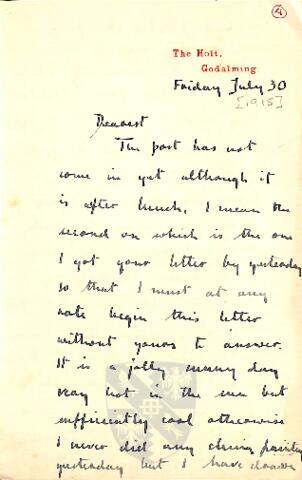 4
The Holt,
Godalming
Friday July 30
[1915]
Dearest
The post has not
come in yet although it
is after lunch, I mean the
second on which is the one
I got your letter by yesterday
so that I must at any
rate begin this letter
without yours to answer.
It is a jolly sunny day
very hot in the sun but
sufficiently cool otherwise
I never did any china painting
yesterday but I have drawn